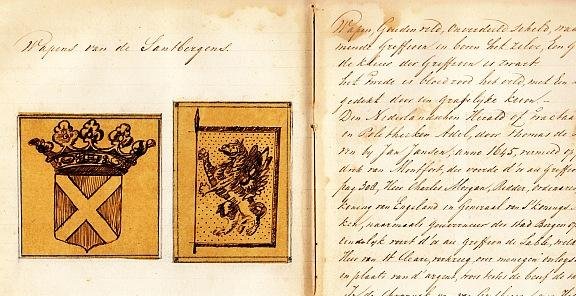 Wapens van de Santbergens.
Wapen, Gouden veld, onverdeeld schild, waa
mende Griffioen en boven het zelve, een G
de kleur der Griffioen is zwart
het tweede is bloed rood het veld, met een
gedekt door een grafelijke kroon. —
Den Nederlandschen Herald of Tractaa
en Politieken Adel, door Thomas de
ven by Jan Jansen, anno 1645, vermeld op
dirk van Montfort, die voerde d'or au Griffioen
pag 308, Heer Charles Morgan, Ridder,
Koning van Engeland en Generaal van
ken, naarmaals Gouverneur der Stad Bergen op
eindelyk voert d'or au Griffioen de Sable,
Heer van St Cleare,
en plaats van d'argent, trois testes de beuf de